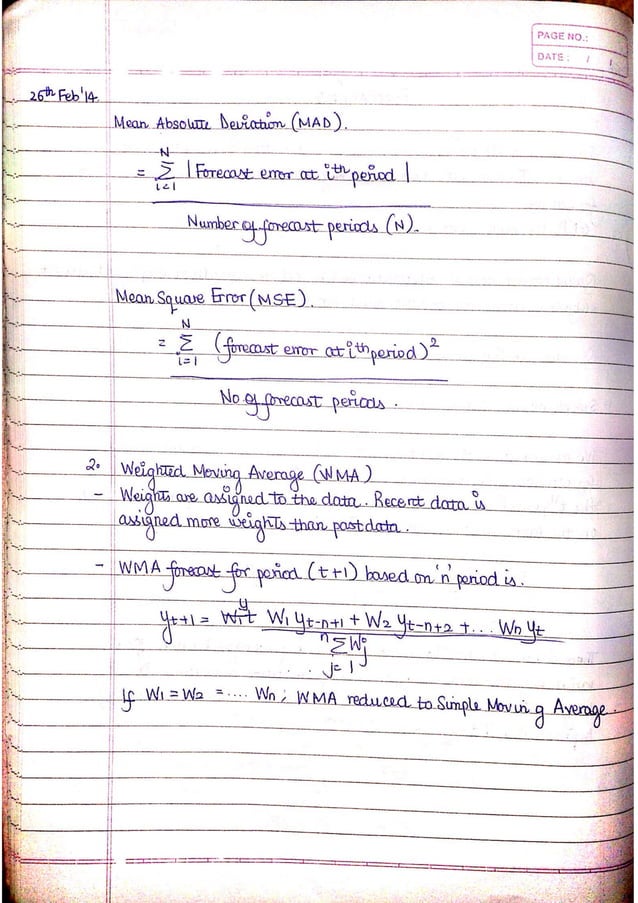 PAGE NO.:
DATE: / /
26th Feb'14
Mean Absolute Deviation (MAD).
= N Σ i=1 | Forecast error at ith period |
Number of forecast periods (N).
Mean Square Error (MSE).
= N Σ i=1 (forecast error at ith period)²
No of forecast periods.
2. Weighted Moving Average (WMA)
- Weights are assigned to the data. Recent data is
assigned more weights than past data.
- WMA forecast for period (t+1) based on 'n' period is.
yt+1 = W1 yt-n+1 + W2 yt-n+2 + ... Wn yt
n Σ Wj
j=1
If W1 = W2 = .... Wn; WMA reduced to Simple Moving Average.